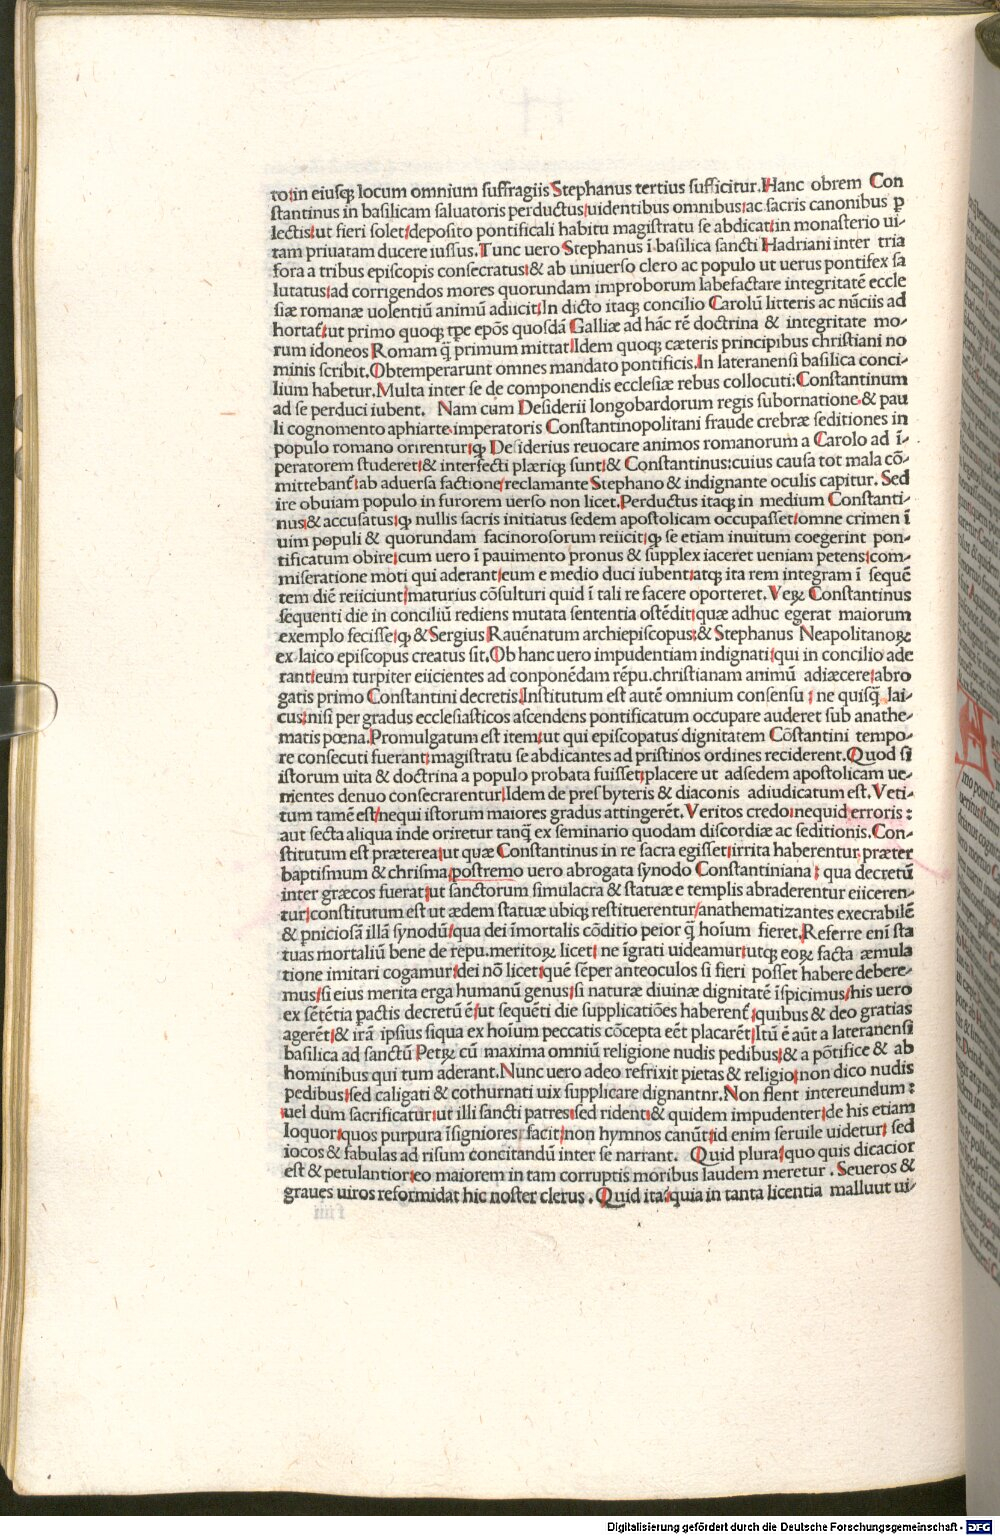 to:in eiusq; locum omnium suffragiis Stephanus tertius sufficitur. Hanc obrem Con
stantinus in basilicam saluatoris perductus/uidentibus omnibus:ac sacris canonibus ꝑ
lectis:ut fieri solet/deposito pontificali habitu magistratu se abdicat:in monasterio ui-
tam priuatam ducere iussus. Tunc uero Stephanus ī basilica sancti Hadriani inter tria
fora a tribus episcopis consecratus:& ab uniuerso clero ac populo ut uerus pontifex sa
lutatus:ad corrigendos mores quorundam improborum labefactare integritatē eccle
siæ romanæ uolentiū animū adiicit:In dicto itaq; concilio Carolū litteris ac nūciis ad
hortat̄:ut primo quoq; tpe epōs quosdā Galliæ ad hāc rē doctrina & integritate mo-
rum idoneos Romam q̄ primum mittat:Idem quoq; cæteris principibus christiani no
minis scribit. Obtemperarunt omnes mandato pontificis. In lateranensi basilica conci-
lium habetur. Multa inter se de componendis ecclesiæ rebus collocuti: Constantinum
ad se perduci iubent. Nam cum Desiderii longobardorum regis subornatione & pau
li cognomento aphiarte imperatoris Constantinopolitani fraude crebræ seditiones in
populo romano orirentur:ꝙ Desiderius reuocare animos romanorum a Carolo ad ī-
peratorem studeret:& interfecti plæriq; sunt:& Constantinus:cuius causa tot mala cō-
mittebant̄:ab aduersa factione/reclamante Stephano & indignante oculis capitur. Sed
ire obuiam populo in furorem uerso non licet. Perductus itaq; in medium Constanti-
nus:& accusatus:ꝙ nullis sacris initiatus sedem apostolicam occupasset:omne crimen ī
uim populi & quorundam facinorosorum reiicit:ꝙ se etiam inuitum coegerint pon-
tificatum obire:cum uero ī pauimento pronus & supplex iaceret ueniam petens:com-
miseratione moti qui aderant:eum e medio duci iubent:atq; ita rem integram ī sequē
tem diē reiiciunt/maturius cōsulturi quid ī tali re facere oporteret. Veꝝ Constantinus
sequenti die in conciliū rediens mutata sententia ostēdit:quæ adhuc egerat maiorum
exemplo fecisse:ꝙ & Sergius Rauēnatum archiepiscopus:& Stephanus Neapolitanoꝝ
ex laico episcopus creatus sit. Ob hanc uero impudentiam indignati:qui in concilio ade
rant:eum turpiter eiicientes ad conponēdam rēpu. christianam animū adiæcere:abro
gatis primo Constantini decretis. Institutum est autē omnium consensu : ne quisq̄ lai-
cus:nisi per gradus ecclesiasticos ascendens pontificatum occupare auderet sub anathe-
matis pœna. Promulgatum est item:ut qui episcopatus dignitatem Cōstantini tempo-
re consecuti fuerant:magistratu se abdicantes ad pristinos ordines reciderent. Quod si
istorum uita & doctrina a populo probata fuisset:placere ut adsedem apostolicam ue-
nientes denuo consecrarentur. Idem de presbyteris & diaconis adiudicatum est. Veti-
tum tamē est/nequi istorum maiores gradus attingerēt. Veritos credo:nequid erroris :
aut secta aliqua inde oriretur tanq̄ ex seminario quodam discordiæ ac seditionis. Con-
stitutum est præterea:ut quæ Constantinus in re sacra egisset:irrita haberentur præter
baptismum & chrisma:postremo uero abrogata synodo Constantiniana : qua decretū
inter græcos fuerat:ut sanctorum simulacra & statuæ e templis abraderentur eiiceren-
tur:constitutum est ut ædem statuæ ubiq; restituerentur/anathematizantes execrabilē
& pniciosā illā synodū/qua dei īmortalis cōditio peior q̄ hoium fieret. Referre enī sta
tuas mortaliū bene de repu. meritoꝝ licet: ne īgrati uideamur:utq; eoꝝ facta æmula
tione imitari cogamur:dei nō licet:quē sēper anteoculos si fieri posset habere debere-
mus/si eius merita erga humanū genus:si naturæ diuinæ dignitatē īspicimus/his uero
ex sētētia pactis decretū ē/ut sequēti die supplicatiōes haberent̄:quibus & deo gratias
agerēt:& irā ipsius siqua ex hoium peccatis cōcepta eēt placarēt:Itū ē aūt a lateranensi
basilica ad sanctū Petꝝ cū maxima omniū religione nudis pedibus:& a pōtifice & ab
hominibus qui tum aderant. Nunc uero adeo refrixit pietas & religio:non dico nudis
pedibus:sed caligati & cothurnati uix supplicare dignantnr. Non flent intereundum :
uel dum sacrificatur:ut illi sancti patres:sed rident:& quidem impudenter:de his etiam
loquor:quos purpura īsigniores facit/non hymnos canūt:id enim seruile uidetur: sed
iocos & fabulas ad risum concitandū inter se narrant. Quid plura:quo quis dicacior
est & petulantior:eo maiorem in tam corruptis moribus laudem meretur . Seueros &
graues uiros reformidat hic noster clerus . Quid ita:quia in tanta licentia malluut ui-
Digitalisierung gefördert durch die Deutsche Forschungsgemeinschaft - DFG